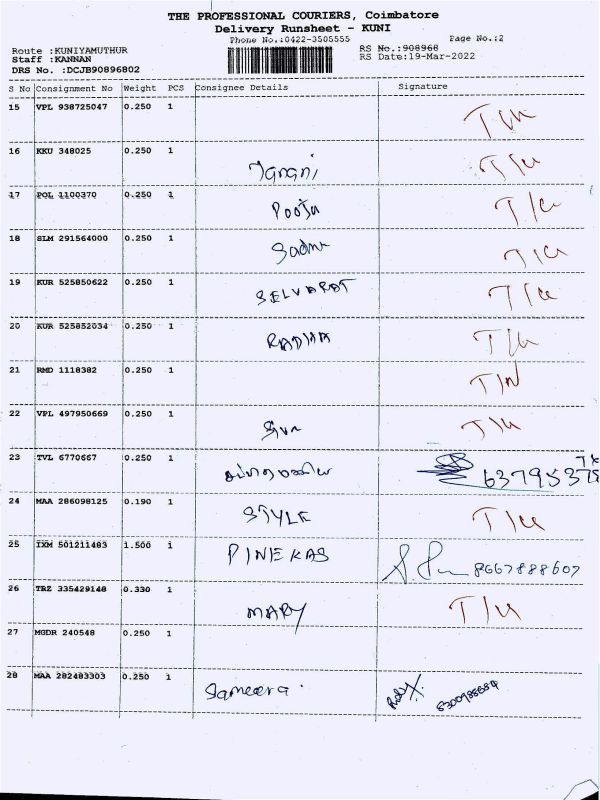 THE PROFESSIONAL COURIERS, Coimbatore
Delivery Runsheet - KUNI
Phone No.:0422-3505555
Page No.:2
Route :KUNIYAMUTHUR
RS No.:908968
Staff :KANNAN
RS Date:19-Mar-2022
DRS No. :DCJB90896802
S No Consignment No Weight PCS Consignee Details Signature
15 VPL 938725047 0.250 1
16 KKU 348025 0.250 1 Janani T/u
17 POL 1100370 0.250 1 Pooja T/u
18 SLM 291564000 0.250 1 T/u
19 KUR 525850622 0.250 1 SELVARAT T/u
20 KUR 525852034 0.250 1 RADHA T/u
21 RMD 1118382 0.250 1
22 VPL 497950669 0.250 1 T/u
23 TVL 6770667 0.250 1
24 MAA 286098125 0.190 1 STYLE T/u
25 IXM 501211483 1.500 1 PINEKAS 8667888607
26 TRZ 335429148 0.330 1 MARY T/u
27 MGDR 240548 0.250 1
28 MAA 282483303 0.250 1 Sameera.